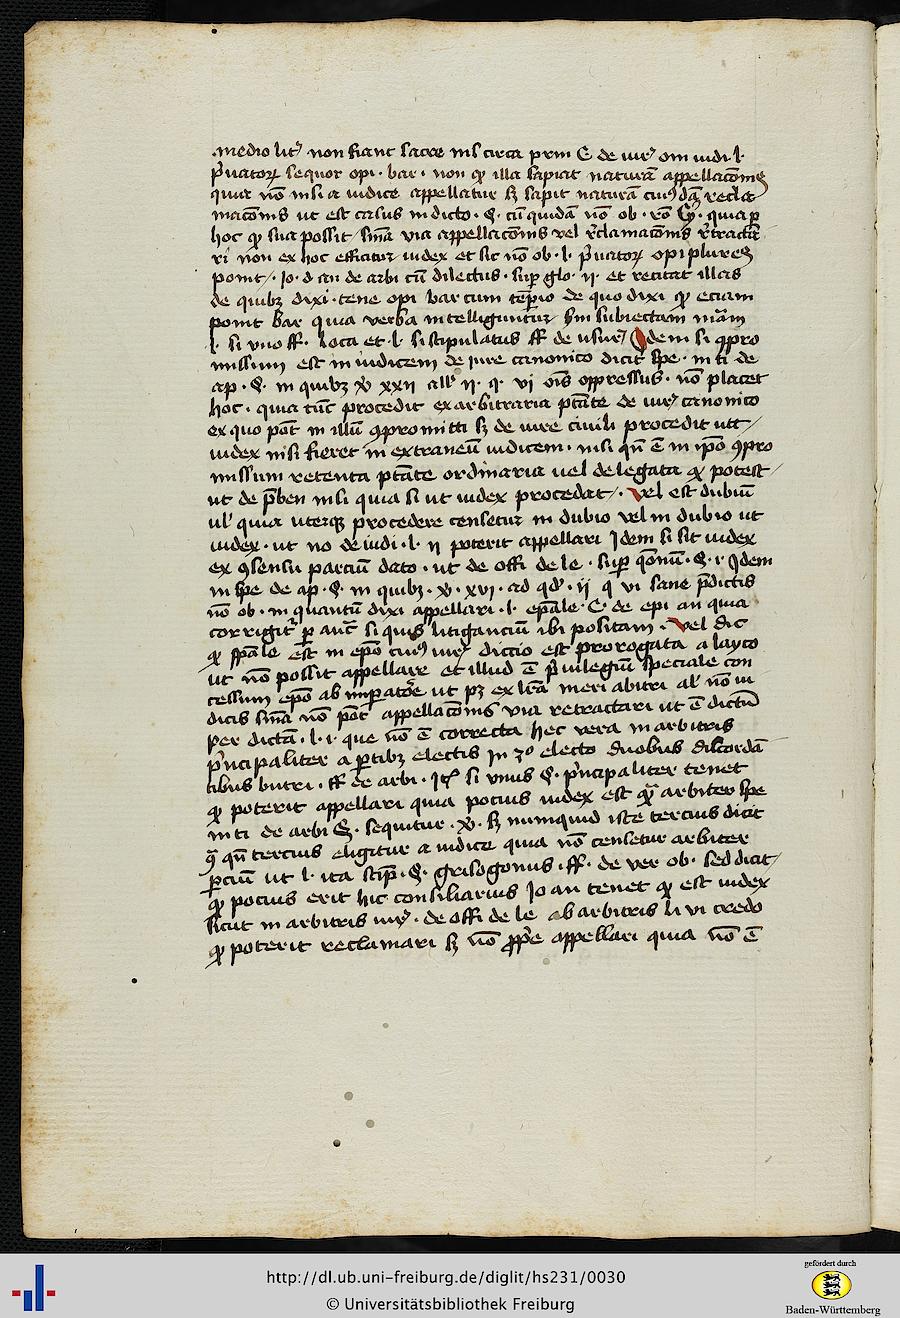 medio litꝭ non fiant sacre nisi circa prin C de iurꝭ om iudi l·
p̄uatoꝝ sequor opi · bar · non qꝫ illa sapiat naturā appellacōnis
quia nō nisi a iudice appellatur sꝫ sapit naturā cuiꝰdā recla
macōnis ut est casus in dicto · §· cū quidā nō ob · quia ꝑ
hoc qꝫ sua possit sniā via appellacōnis vel r̄clamacōnis r̄tracta
ri non ex hoc efficitur iudex et sic nō ob · l· p̄uatoꝝ opi plures
ponit · Io · d an de arbi cū dilectus · suꝑ glo · ij · et recitat illas
de quibꝫ dixi · tene opi bar cum temꝑio de quo dixi qꝫ eciam
ponit bar quia verba intelliguntur sm̄ subiectam mām
l· si vno ff· loca et · l· si stipulatus ff de usurꝭ Idem si ꝯpro
missum est in iudicem de iure canonico dicit spe · in ti de
ap · §· in quibꝫ xxij ij · q· vj oīs oppressus · nō placet
hoc · quia tūc procedit ex arbitraria ptāte de iurꝭ canonico
ex quo pōt in illū ꝯpromitti sꝫ de iure ciuili procedit utt
iudex nisi fieret in extraneū iudicem · nisi qn̄ ē in ip̄o ꝯpro
missum retenta ptāte ordinaria uel delegata qꝫ potest
ut de p̄ben nisi quia si ut iudex procedat · vel est dubiū
ul' quia uterqꝫ procedere censetur in dubio vel in dubio ut
iudex · ut no de iudi · l· ij poterit appellari Idem si sit iudex
ex ꝯsensu parciū dato · ut de offi de le · suꝑ q̄onū · §· i· Idem
in spe de ap · §· in quibꝫ · xvj · ad qd' · ij q vi sane p̄dictis
nō ob · in quantū dixi appellari · l· epāle · C· de epi an quia
corrigitᷣ ꝑ auc̄ si quis litiganciū ibi positam · vel dic
qꝫ sp̄ale est in epō cuiꝰ iurꝭ dictio est prorogata a layco
ut nō possit appellare et illud ē p̄uilegiū speciale con
cessum epō ab imperatōre ut pꝫ ex lr̄a meri abitri al' nō iu
dicis sniā nō pōt appellacōnis via retractari ut ē dictū
per dictā · l· i· que nō ē correcta hec vera in arbitris
p̄ncipaliter a ꝑtibꝫ electis In 3º electo duobus discordā
tibus butri · ff de arbi · Itꝫ si vnus §· p̄ncipaliter tenet
qꝫ poterit appellari quia pocius iudex est qꝫ arbiter spe
in ti de arbi §· sequitur · sꝫ numquid iste tercius dicit
qꝫ qn̄ tercius eligitur a iudice quia nō censetur arbiter
ꝑciū ut l· ita stip̄ · §· grisogonus · ff· de ver ob · sed dicit
qꝫ pocius erit hic consiliarius Io an tenet qꝫ est iudex
sicut in arbitris iurꝭ · de offi de le ab arbitris li vi credo
qꝫ poterit reclamari sꝫ nō ꝓp̄e appellari quia nō ē
http://dl.ub.uni-freiburg.de/diglit/hs231/0030
© Universitätsbibliothek Freiburg
gefördert durch
Baden-Württemberg